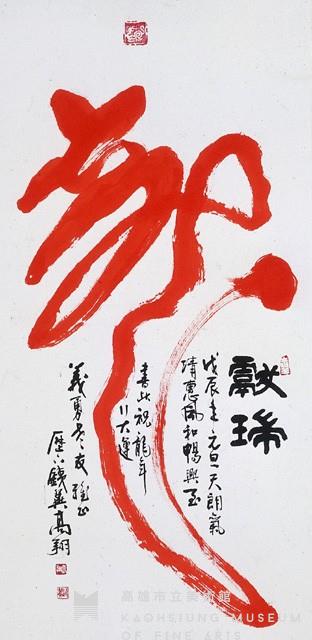 龍
獻瑞
戊辰年元旦天朗氣
清惠風和暢興至
書此祝龍年
行大運
義勇友雅正
高翔
高雄市立美術館
KAOHSIUNG MUSEUM
OF FINE ARTS